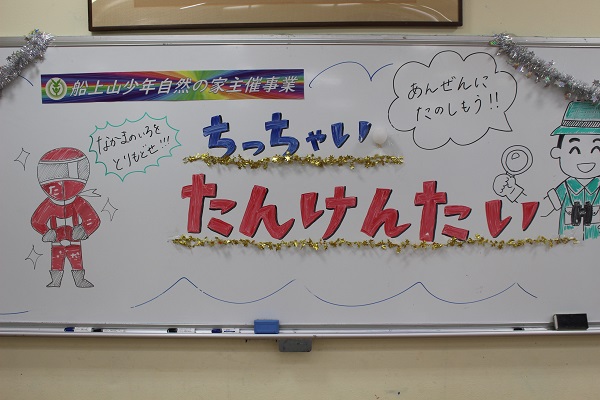 船上山少年自然の家主催事業
あんぜんに
たのしもう!!
なかまのいろを
とりもどせ!!!
ちっちゃい
たんけんたい
た